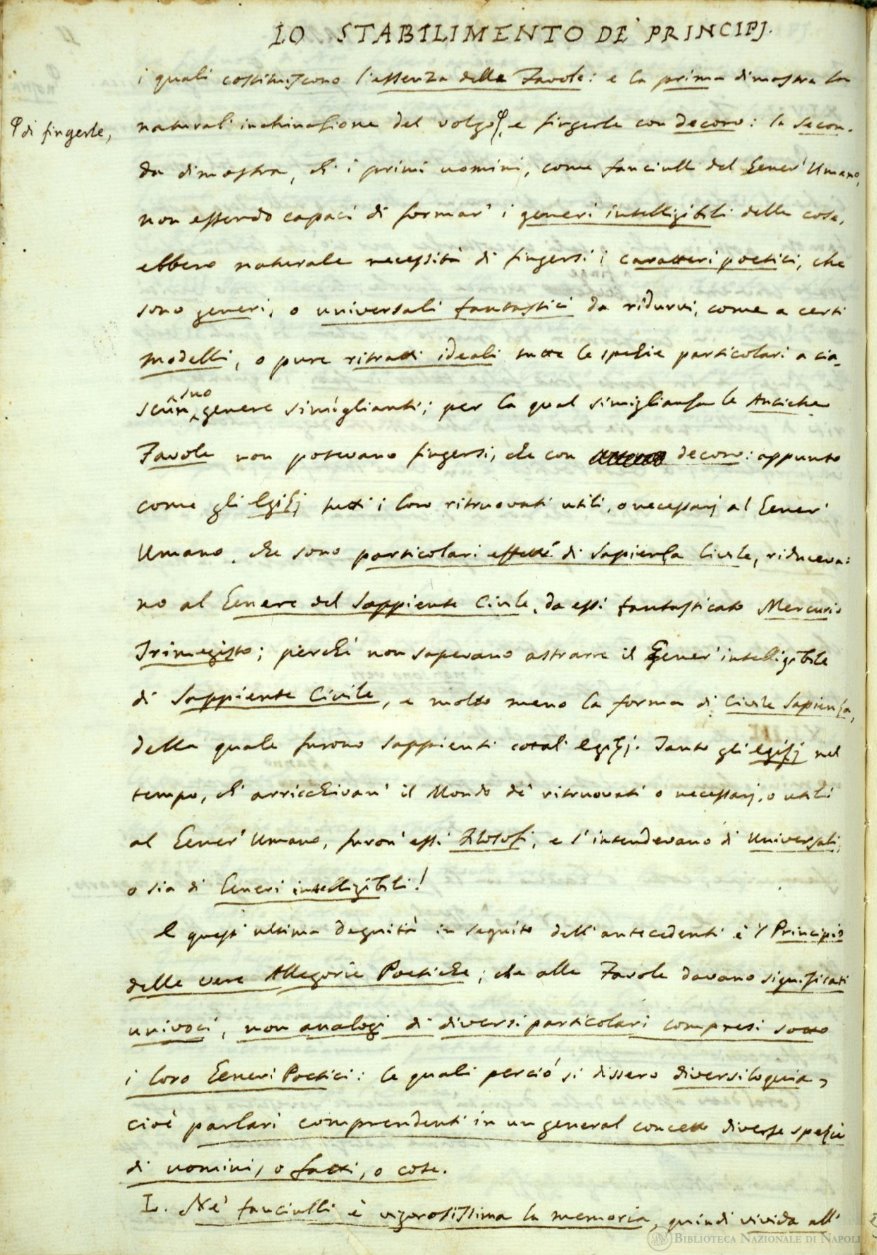 LO STABILIMENTO DE' PRINCIPJ.
i quali costituiscono l'essenza delle Favole: e la prima dimostra la
natural' inchinazione del volgo φ, e fingerle con decoro: la secon-
φ di fingerle,
da dimostra, ch' i primi uomini, come fanciulli del Gener' Umano,
non essendo capaci di formar' i generi intelligibili delle cose,
ebbero naturale necessità di fingersi i caratteri poetici, che
sono generi, o universali fantastici da ridurvi, come a certi
modelli, o pure ritratti ideali tutte le spezie particolari a cia-
scun suo genere simiglianti; per la qual simiglianza le Antiche
Favole non potevano fingersi, che con decoro: appunto
come gli Egizj tutti i loro ritruovati utili, o necessarj al Gener'
Umano, che sono particolari effetti di Sapienza Civile, riduceva-
no al Genere del Sappiente Civile, da essi fantasticato Mercurio
Trimegisto; perchè non sapevano astrarre il Gener' intelligibile
di Sappiente Civile, e molto meno la forma di Civile Sapienza,
della quale furono sappienti cotali Egizj. Tanto gli Egizj nel
tempo, ch' arricchivan' il Mondo de' ritruovati o necessarj, o utili
al Gener' Umano, furon' essi Filosofi, e s'intendevano di Universali,
o sia di Generi intelligibili!
E quest' ultima degnità in seguito dell'antecedenti è 'l Principio
delle vere Allegorie Poetiche; che alle Favole davano significati
univoci, non analogi di diversi particolari compresi sotto
i loro Generi Poetici: le quali perciò si dissero diversiloquia,
cioè parlari comprendenti in un general concetto diverse spezie
di uomini, o fatti, o cose.
L. Ne' fanciulli è vigorosissima la memoria, quindi vivida all'
BIBLIOTECA NAZIONALE DI NAPOLI